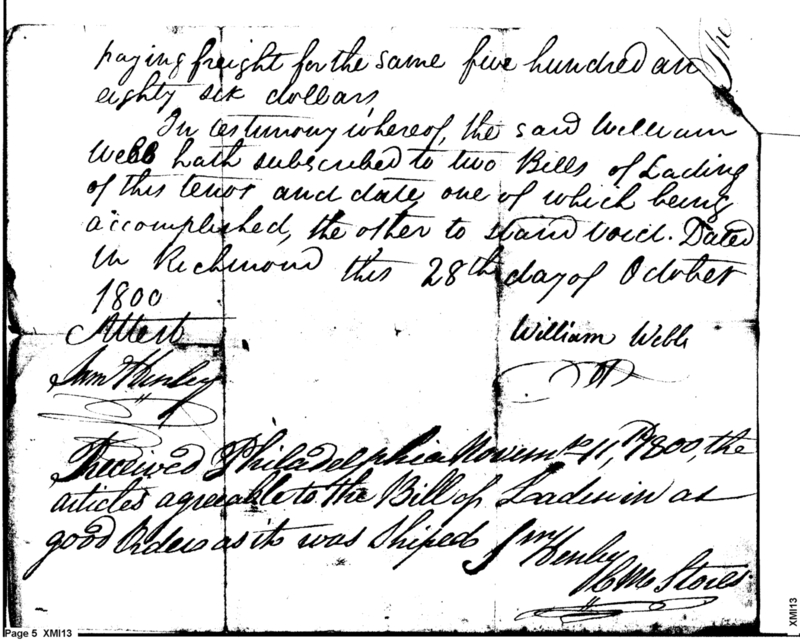 paying freight for the same five hundred an
eighty six dollars,
In testimony whereof, the said William
Webb hath subscribed to two Bills of Lading
of this tenor and date, one of which being
accomplished, the other to stand void. Dated
in Richmond this 28th day of October
1800
Attest
William Webb
Sam Henley
Received Philadelphia Novemr 11th 1800, the
articles agreeable to the Bill of Ladein in as
good Order as it was Shiped
Henley
Stores
The
Page 5 XMI13
XMI13